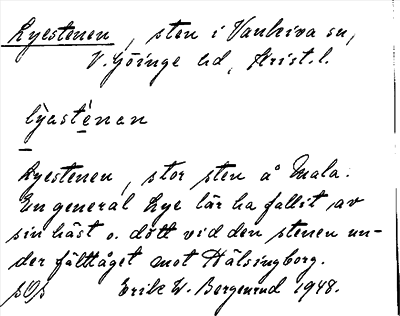 Lyestenen, sten i Vankiva sn,
V. Göinge hd, Krist. l.
lỳasténan
Lyestenen, stor sten å Mala.
En general Lye lär ha fallit av
sin häst o. dött vid den stenen un-
der fälttåget mot Hälsingborg.
Erik W. Bergenrud 1948.